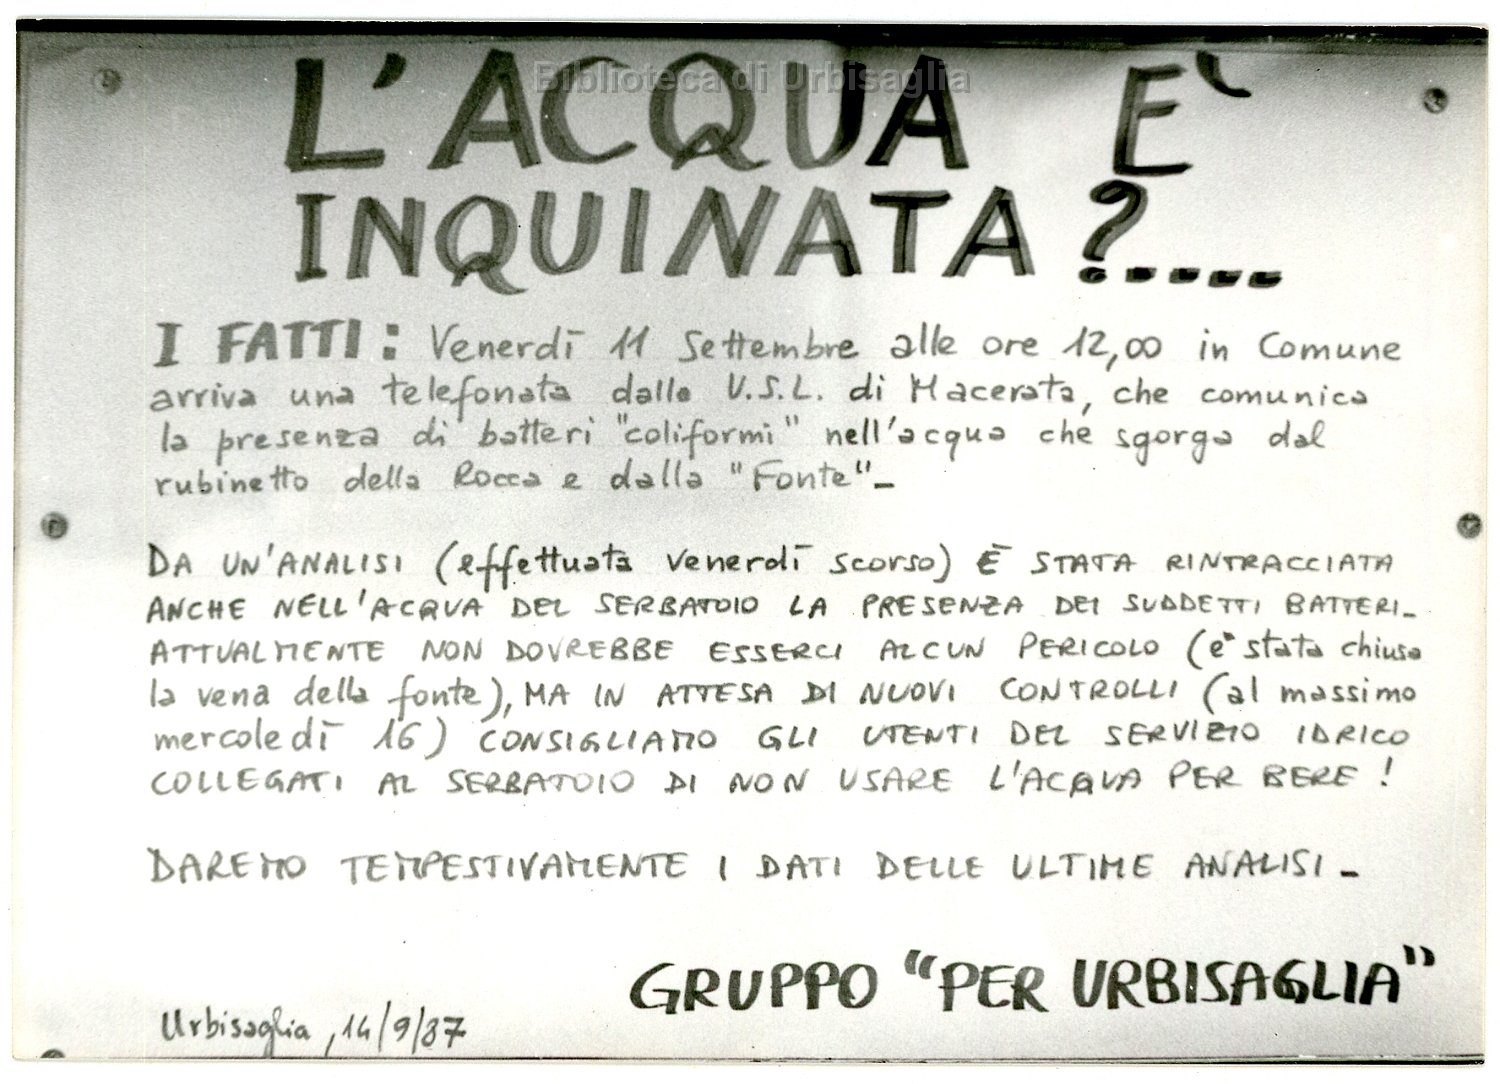 Biblioteca di Urbisaglia
L'ACQUA E'
INQUINATA?....
I FATTI: Venerdì 11 Settembre alle ore 12,00 in Comune
arriva una telefonata dalla U.S.L. di Macerata, che comunica
la presenza di batteri "coliformi" nell'acqua che sgorga dal
rubinetto della Rocca e dalla "Fonte"_
DA UN'ANALISI (effettuata venerdì scorso) È STATA RINTRACCIATA
ANCHE NELL'ACQUA DEL SERBATOIO LA PRESENZA DEI SUDDETTI BATTERI_
ATTUALMENTE NON DOVREBBE ESSERCI ALCUN PERICOLO (e' stata chiusa
la vena della fonte), MA IN ATTESA DI NUOVI CONTROLLI (al massimo
mercoledì 16) CONSIGLIAMO GLI UTENTI DEL SERVIZIO IDRICO
COLLEGATI AL SERBATOIO DI NON USARE L'ACQUA PER BERE!
DAREMO TEMPESTIVAMENTE I DATI DELLE ULTIME ANALISI_
GRUPPO "PER URBISAGLIA"
Urbisaglia, 14/9/87